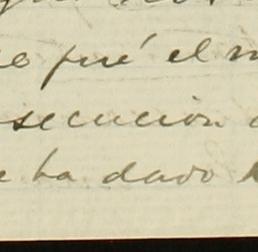 e fué el m
secucion
e ha dado